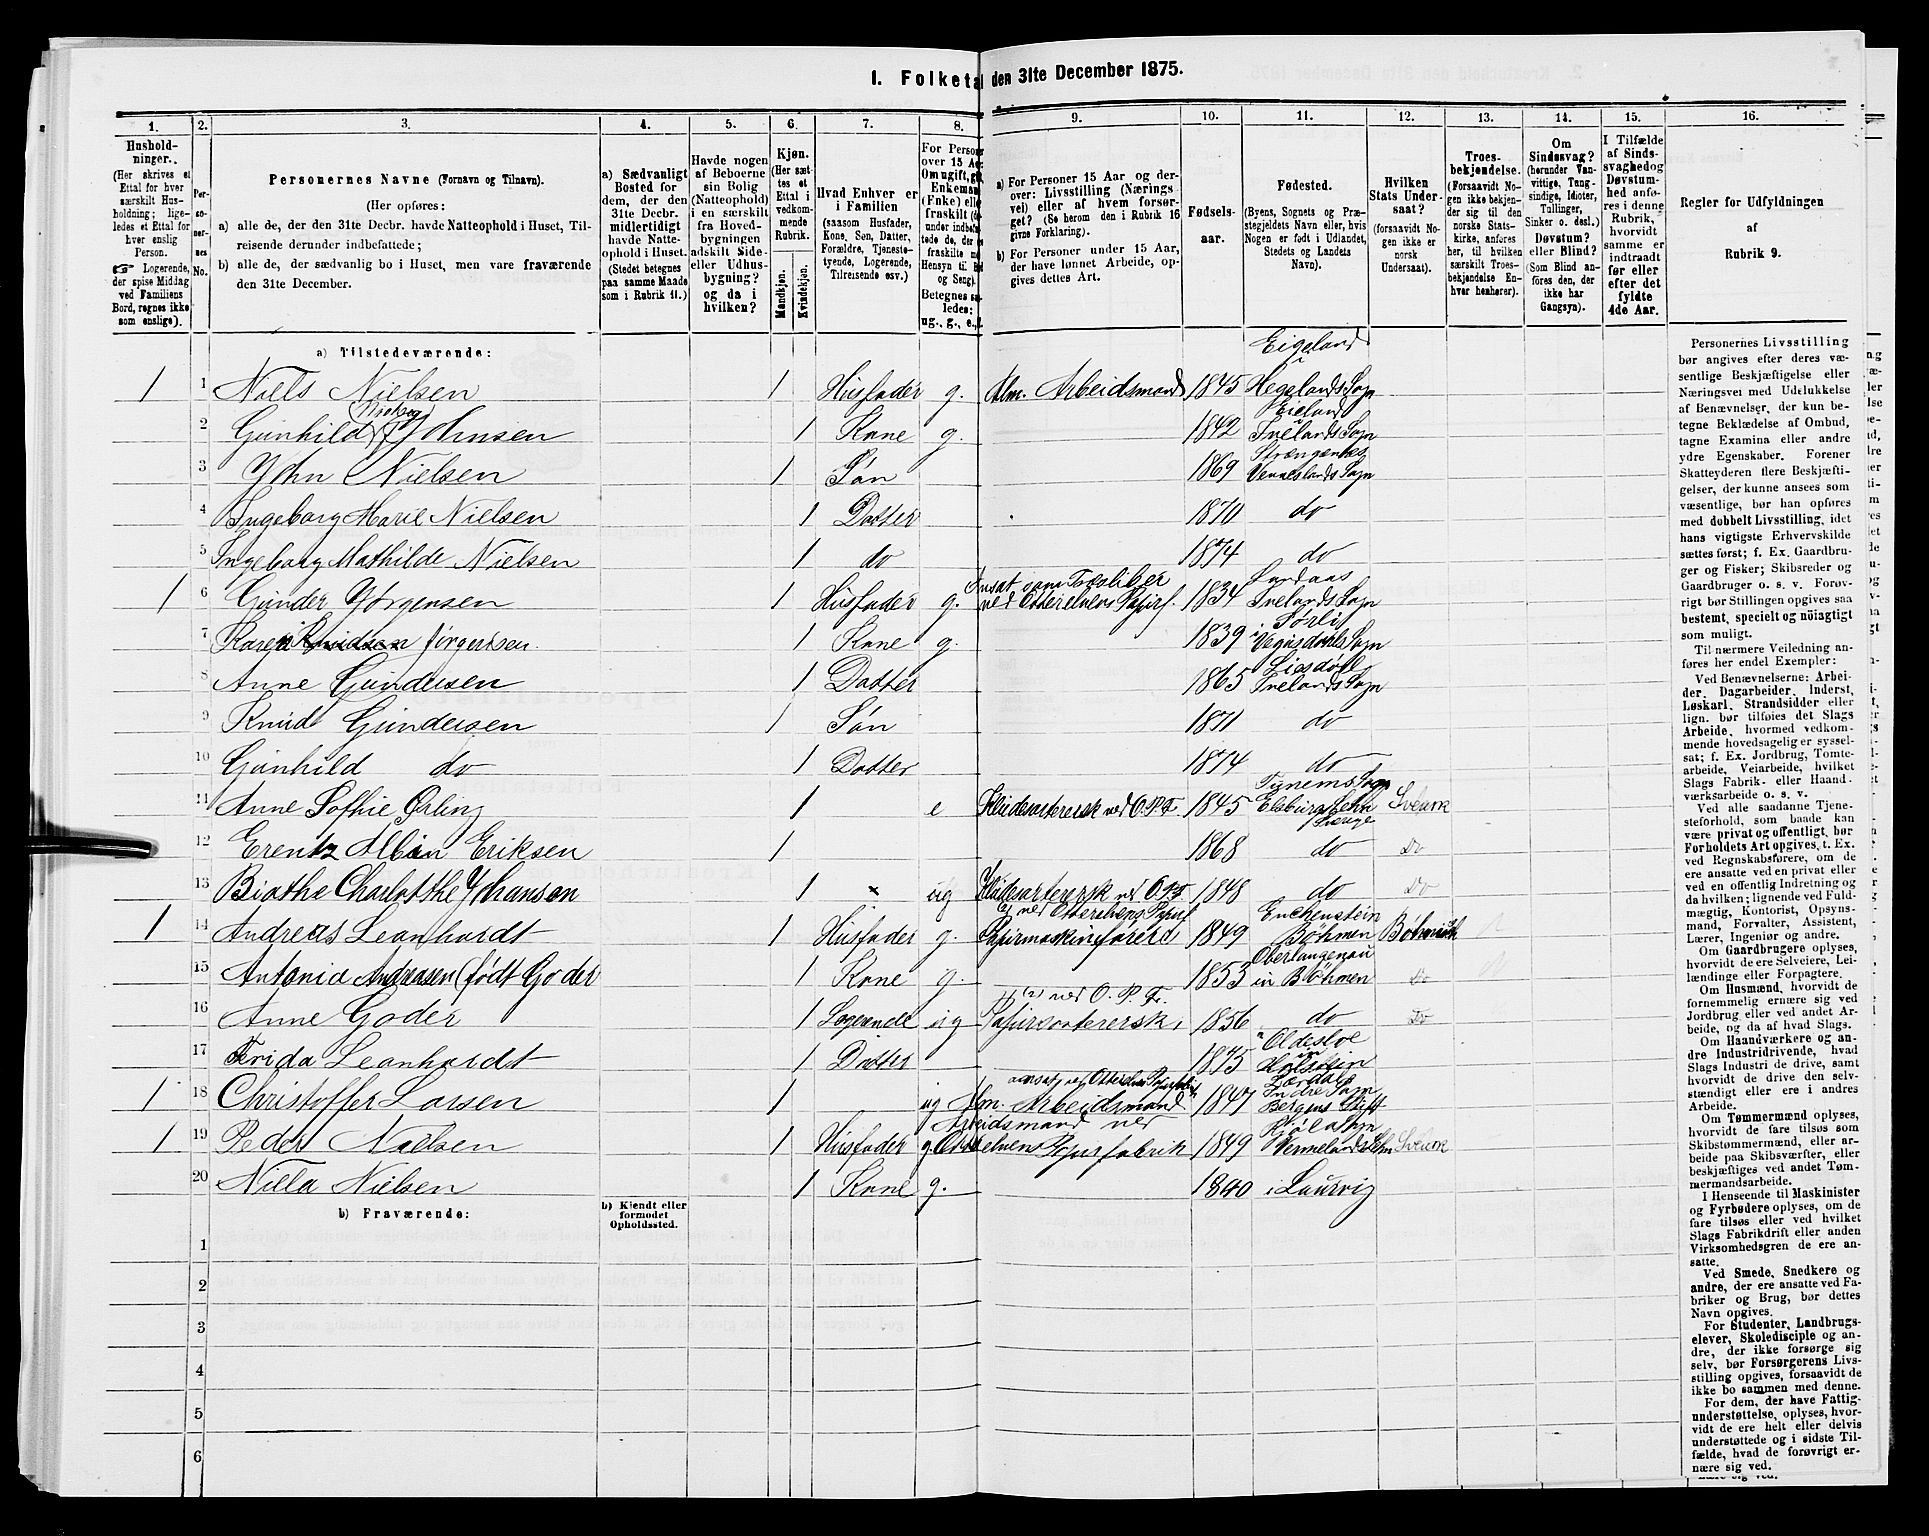 I. Folketal den 31te December 1875.
1. 2. 3. 4. 5. 6. 7. 8. 9. 10. 11. 12. 13. 14. 15. 16.
Hushold-
ninger.
(Her skrives et
Ettal for hver
særskilt Hus-
holdning; lige-
ledes et Ettal for
hver enslig
Person.
☞ Logerende,
der spise Middag
ved Familiens
Bord, regnes ikke
som enslige).
Per-
so-
ner-
nes
No.
Personernes Navne (Fornavn og Tilnavn).
(Her opføres:
a) alle de, der den 31te Decbr. havde Natteophold i Huset, Til-
reisende derunder indbefattede;
b) alle de, der sædvanlig bo i Huset, men vare fraværende
den 31te December.
a) Sædvanligt
Bosted for
dem, der den
31te Decbr.
midlertidigt
havde Natte-
ophold i Huset.
(Stedet betegnes
paa samme Maade
som i Rubrik 11.)
Havde nogen
af Beboerne
sin Bolig
(Natteophold)
i en særskilt
fra Hoved-
bygningen
adskilt Side-
eller Udhus-
bygning?
og da i
hvilken?
Kjøn.
(Her sæt-
tes et
Ettal i
vedkom-
mende
Rubrik.
Mandkjøn.
Kvindekjøn.
Hvad Enhver er
i Familien
(saasom Husfader,
Kone, Søn, Datter,
Forældre, Tjeneste-
tyende, Logerende,
Tilreisende osv.)
For Person
over 15 Aa
Om ugift, gif
Enkeman
(Enke) elle
fraskilt (de
under indbefat-
tede de, der er
fraskilte m
Hensyn til B
og Seng).
Betegnes sa-
ledes:
ug., g., e., f.
a) For Personer 15 Aar og der-
over: Livsstilling (Nærings-
vei) eller af hvem forsør-
get? (Se herom den i Rubrik 16
givne Forklaring).
b) For Personer under 15 Aar,
der have lønnet Arbeide, op-
gives dettes Art.
Fødsels-
aar.
Fødested.
(Byens, Sognets og Præ-
stegjeldets Navn eller, hvis
Nogen er født i Udlandet,
Stedets og Landets
Navn).
Hvilken
Stats Under-
saat?
(forsaavidt No-
gen ikke er
norsk
Undersaat).
Troes-
bekjendelse.
(Forsaavidt No-
gen ikke bekjen-
der sig til den
norske Stats-
kirke, anføres
her, til hvilken
særskilt Troes-
bekjendelse En-
hver henhører).
Om
Sindssvag?
(herunder Van-
vittige, Tung-
sindige, Idioter,
Tullinger,
Sinker o. desl.)
Døvstum?
eller Blind?
(Som Blind an-
føres den, der
ikke har
Gangsyn).
I Tilfælde
af Sinds-
svaghed og
Døvstum-
hed anfø-
res i denne
Rubrik,
hvorvidt
samme er
indtraadt
før eller
efter det
fyldte
4de Aar.
Regler for Udfyldningen
af
Rubrik 9.
a) Tilstedeværende:
1 1 Niels Nielsen 1 Husfader g. Alm. Arbeidsmand 1845 Eigeland i Hegelands Sogn
2 Gunhild Johnsen 1 Kone g. 1842 Eieland i Ivelands Sogn
3 John Nielsen 1 Søn 1869 Venneslands Sogn
4 Ingeborg Marie Nielsen 1 Datter 1870 do
5 Ingeborg Mathilde Nielsen 1 do 1874 do
1 6 Gunder Jørgensen 1 Husfader g. Ansat som ved Otterelvens Papirf. 1834 Ivelands Sogn
7 Karen Knudsen Jørgensen. 1 Kone g. 1839 i Vegusdals Sogn
8 Anne Gundersen 1 Datter 1865 Ivelands Sogn
9 Knud Gundersen 1 Søn 1871 do
10 Gunhild do 1 Datter 1874 do
11 Anne Sofhie Ørling 1 e ved O.P.F. 1845 Elsburg Lehn Sverige Svensk
12 Erentz Albin Eriksen 1 1868 do Do
13 Biathe Charlotthe Johansen 1 × ug ved O.P.F. 1848 do Do
1 14 Andreas Leonhardt 1 Husfader g. Papirmaskinefører 1849 Böhmen Bøhmisk
15 Antonia Andreasen (født Goder 1 Kone g. 1853 Oberlangenau in Böhmen Do
16 Anne Goder 1 Logerende ug ved O. P. F. Papirsortererske 1856 do Do
17 Frida Leonhardt 1 Datter 1875 Oldesloe in Holstein
1 18 Christoffer Larsen 1 ug Alm. Arbeidsmand 1847 Indre Sogn Bergens Stift
1 19 Peder Nielsen 1 Husfader g. Arbeidsmand ved Otterelvens Papirfabrik 1849 Vermelands Lehn Svensk
20 Niela Nielsen 1 Kone g. 1840 i Laurvig
b) Fraværende:
b) Kjendt eller
formodet
Opholdssted.
1
2
3
4
5
6
Personernes Livsstilling
bør angives efter deres væ-
sentlige Beskjæftigelse eller
Næringsvei med Udelukkelse
af Benævnelser, der kun be-
tegne Beklædelse af Ombud,
tagne Examina eller andre
ydre Egenskaber. Forener
Skatteyderen flere Beskjæfti-
gelser, der kunne ansees som
væsentlige, bør han opføres
med dobbelt Livsstilling, idet
hans vigtigste Erhvervskilde
sættes først; f. Ex. Gaardbru-
ger og Fisker; Skibsreder og
Gaardbruger o. s. v. Forøv-
rigt bør Stillingen opgives saa
bestemt, specielt og nøiagtigt
som muligt.
Til nærmere Veiledning an-
føres her endel Exempler:
Ved Benævnelserne: Arbei-
der, Dagarbeider, Inderst,
Løskarl, Strandsidder eller
lign. bør tilføies det Slags
Arbeide, hvormed vedkom-
mende hovedsagelig er syssel-
sat; f. Ex. Jordbrug, Tomte-
arbeide, Veiarbeide, hvilket
Slags Fabrik- eller Haand-
værksarbeide o. s. v.
Ved alle saadanne Tjene-
steforhold, som baade kan
være privat og offentligt, bør
Forholdets Art opgives, t. Ex.
ved Regnskabsførere, om de
ere ansatte ved en privat eller
ved en offentlig Indretning og
da hvilken; lignende ved Fuld-
mægtig, Kontorist, Opsyns-
mand, Forvalter, Assistent,
Lærer, Ingeniør og andre.
Om Gaardbrugere oplyses,
hvorvidt de ere Selveiere, Lei-
lændinge eller Forpagtere.
Om Husmænd, hvorvidt de
fornemmelig ernære sig ved
Jordbrug eller ved andet Ar-
beide, og da af hvad Slags.
Om Haandværkere og an-
dre Industridrivende, hvad
Slags Industri de drive, samt
hvorvidt de drive den selv-
stændigt eller ere i andres
Arbeide.
Om Tømmermænd oplyses,
hvorvidt de fare tilsøs som
Skibstømmermænd, eller ar-
beide paa Skibsværfter, eller
beskjæftiges ved andet Tøm-
mermandsarbeide.
I Henseende til Maskinister
og Fyrbødere oplyses, om de
fare tilsøs eller ved hvilket
Slags Fabrikdrift eller anden
Virksomhedsgren de ere an-
satte.
Ved Smede, Snedkere og
andre, der ere ansatte ved Fa-
briker og Brug, bør dettes
Navn opgives.
For Studenter, Landbrugs-
elever, Skoledisciple og an-
dre, der ikke forsørge sig
selv, bør Forsørgerens Livs-
stilling opgives, forsaavidt de
ikke bo sammen med denne.
For dem, der have Fattig-
understøttelse, oplyses, hvor-
vidt de ere helt eller delvis
understøttede og i sidste Til-
fælde, hvad de forøvrigt er-
nære sig ved.